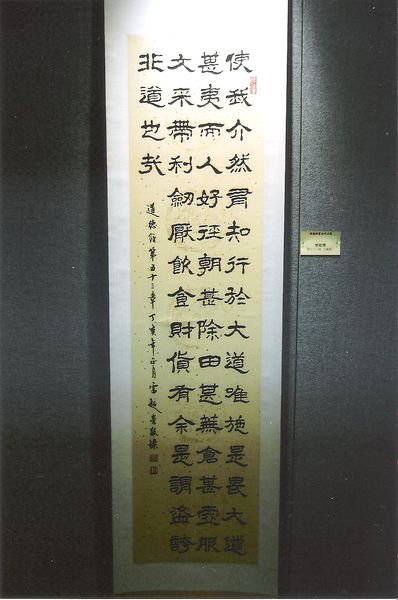 使我介然有知行於大道唯施是畏大道
甚夷而人好徑朝甚除田甚蕪倉甚虚服
文采帶利劒厭飲食財貨有余是謂盗誇
非道也哉
道德经第五十三章丁亥年正月雷超敬録